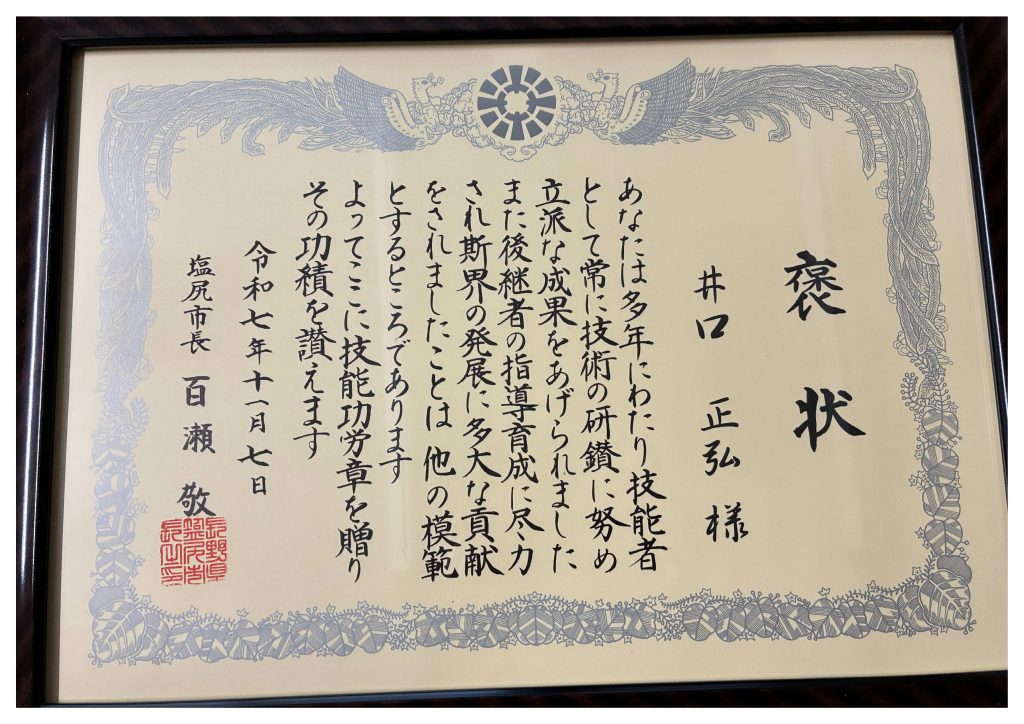 褒状
井口 正弘 様
あなたは多年にわたり技能者
として常に技術の研鑽に努め
立派な成果をあげられました
また後継者の指導育成に尽力
され斯界の発展に多大な貢献
をされましたことは他の模範
とするところであります
よってここに技能功労章を贈り
その功積を讃えます
令和七年十一月七日
塩尻市長 百瀬 敬
長野県
塩尻市
長之印